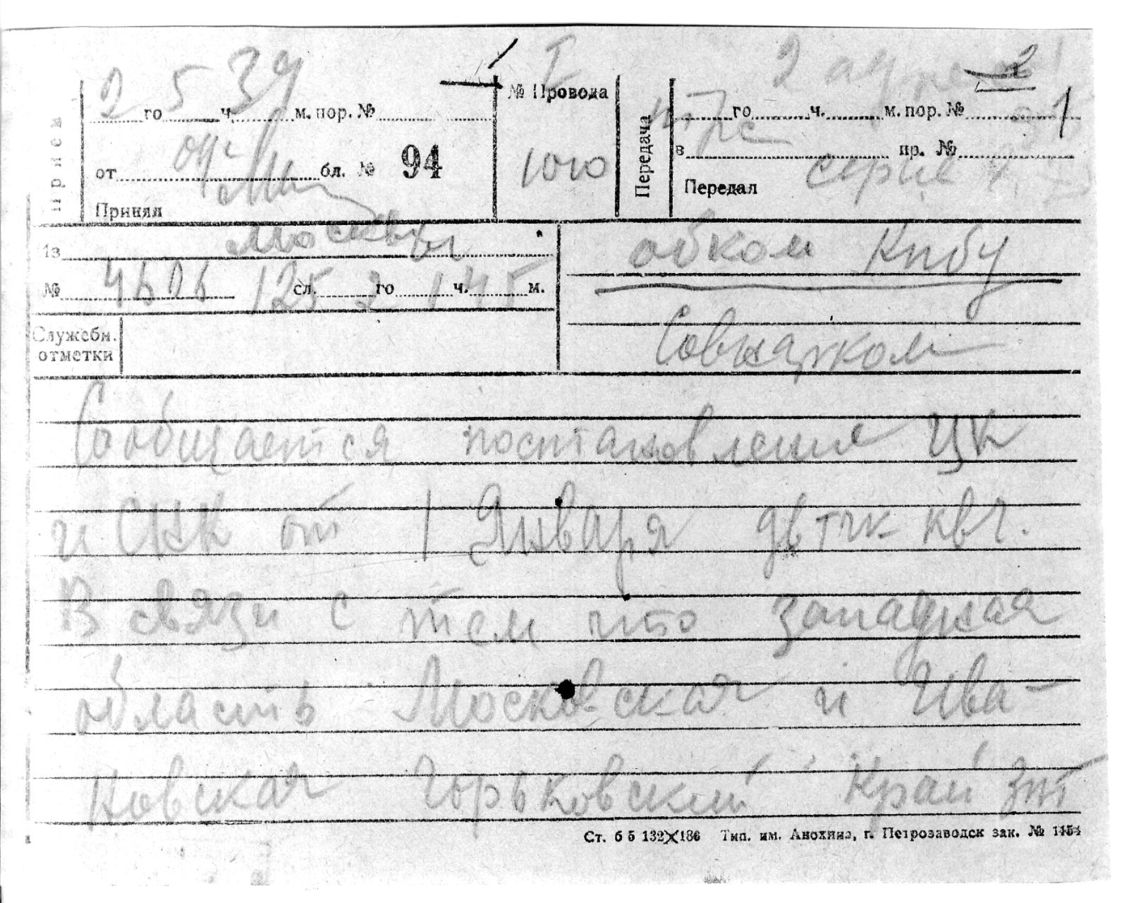 2 5 39
го ч. м. пор. №
прием
от бл. № 94
Принял
I
№ Провода
1010
Передача
2
го ч. м. пор. № 1
в пр. №
Передал серие
Из Москвы
№ 4606 125 сл. 2 го 1 ч. 45 м.
Служебн.
отметки
обком Кпбу
Совнарком
Сообщается постановление ЦК
и СНК от 1 Января двтчк квч.
В связи с тем что западная
область Московская и Ива-
новская Горьковский Край Зпт
Ст. б 5 132х186 Тип. им. Анохина, г. Петрозаводск зак. № 1454